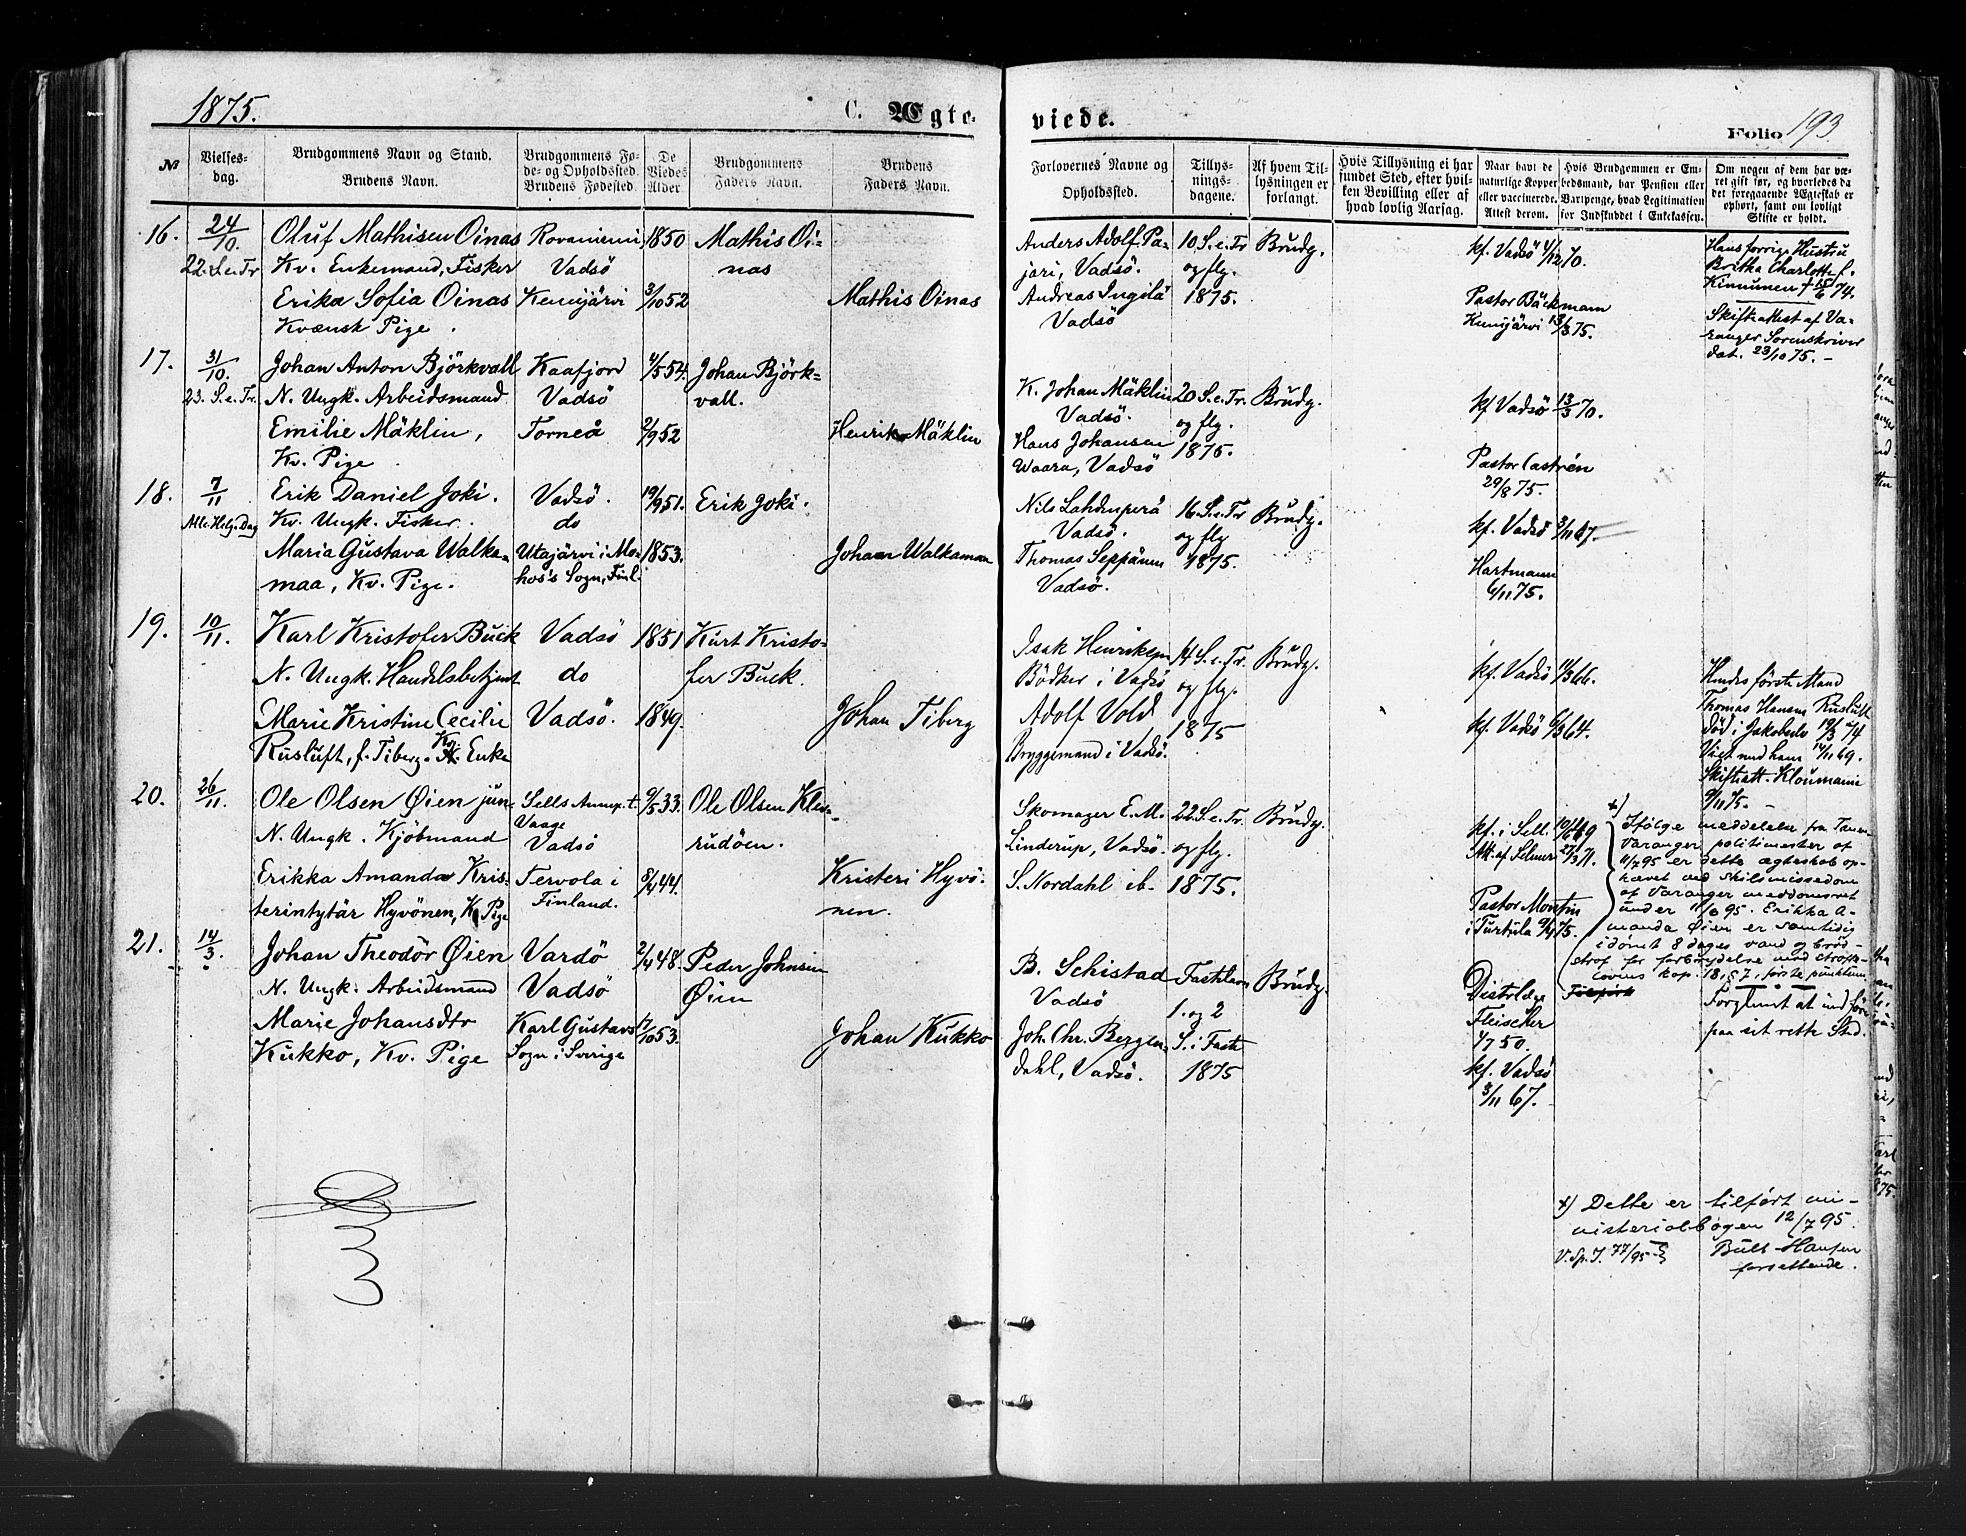 1875.
C. Ægte-
viede.
Folio 193
No
Vielses-
dag.
Brudgommens Navn og Stand.
Brudens Navn.
Brudgommens Fø-
de- og Opholdssted.
Brudens Fødested.
De
Viedes
Alder.
Brudgommens
Faders Navn.
Brudens
Faders Navn.
Forlovernes Navne og
Opholdssted.
Tillys-
nings-
dagene.
Af hvem Til-
lysningen er
forlangt.
Hvis Tillysning ei har
fundet Sted, efter hvil-
ken Bevilling eller af
hvad lovlig Aarsag.
Naar havt de
naturlige Kopper
eller vaccinerede.
Attest derom.
Hvis Brudgommen er Em-
bedsmand, har Pension eller
Vartpenge, hvad Legitimation
for Indskuddet i Enkekassen.
Om nogen af dem har væ-
ret gift før, og hvorledes da
det foregaaende Ægteskab er
ophørt, samt om lovligt
Skifte er holdt.
16.
24/10.
22. S.e.Tr
Oluf Mathisen Oinas
Kv. Enkemand, Fisker
Erika Sofia Oinas
Kvænsk Pige.
Rovaniemi
Vadsö
Kemijärvi
1850
3/10 52
Mathis Oi-
nas
Mathis Oinas
Anders Adolf Pa-
jari, Vadsö.
Andreas Ingilä
Vadsö
10 S.e.Tr
og flg.
1875.
Brudg.
kf. Vadsö 4/12 70.
Pastor Bäckmann
Kemijärvi 13/3 75.
Hans forrige Hustru
Britha Charlotte f.
Kinnunen † 15/6 74.
Skifteattest af Va-
ranger Sorenskriver
dat. 23/10 75. -
17.
31/10.
23. S.e.Tr.
Johan Anton Björkvall
N. Ungk. Arbeidsmand
Emilie Mäklin,
Kv. Pige.
Kaafjord
Vadsö
Torneå
4/5 54.
2/9 52
Johan Björk-
vall.
Henrik Mäklin
K. Johan Mäklin
Vadsö.
Hans Johansen
Waara, Vadsö
20 S.e.Tr.
og flg.
1875.
Brudg.
kf Vadsö 13/3 70.
Pastor Castrén
29/8 75.
18.
7/11
Alle Helg. Dag
Erik Daniel Joki.
Kv. Ungk. Fisker.
Maria Gustava Walka-
maa, Kv. Pige.
Vadsö.
do
Utajärvi i Mo-
hos's Sogn, Finl.
19/9 51.
1853.
Erik Joki.
Johan Walkamaa
Nils Lahdenperä
Vadsö.
Thomas Seppänen
Vadsö.
16. S.e.Tr
og flg
1875.
Brudg.
kf. Vadsö 3/11 67.
Hartmann
6/11 75.
19.
10/11.
Karl Kristofer Buck
N. Ungk. Handelsbetjent
Marie Kristine Cecilie
Rusluft, f. Tiberg. Kv. Enke
Vadsö
do
Vadsö.
1851
1849.
Kurt Kristo-
fer Buck.
Johan Tiberg
Isak Henriksen
Bödker i Vadsö
Adolf Vold
Bryggemand i Vadsö.
14 S.e.Tr.
og flg.
1875
Brudg.
kf. Vadsö 11/3 66.
kf. Vadsö 6/3 64.
Hendes første Mand
Thomas Hansen Rusluft
död i Jakobselv 19/3 74
Viet med ham 14/11 69.
Skifteatt. Kloumann
9/11 75. -
20.
26/11.
Ole Olsen Øien jun.
N. Ungk. Kjöbmand
Erikka Amanda Kris-
terintytär Hyvönen, K Pige
Sells Annx. t.
Vaage
Vadsö
Tervola i
Finland.
9/5 33.
8/4 44.
Ole Olsen Kle-
rudöen.
Kristeri Hyvö-
nen.
Skomager E. M.
Linderup, Vadsö.
S. Nordahl ib.
22 S.e.Tr.
og flg.
1875.
Brudg.
kf. i Sell. 10/6 49
Att. af Selmer 27/3 71.
Pastor Montin
i Turtula 9/4 75.
x) Ifølge meddelelse fra Tanen-
Varanger politimester af
11/7 95 er dette ægteskab op-
hævet ved skilsmissedom
af Varanger meddomsret
under 11/6 95. Erikka A-
manda Øien er samtidig
idømt 8 dages vand og brød-
straf for forbrydelse mod straffe-
lovens kap. 18, § 7, første punktum.
21.
14/3.
Johan Theodör Øien
N. Ungk. Arbeidsmand
Marie Johansdtr
Kukko, Kv. Pige
Vardö
Vadsö
Karl Gustavs
Sogn i Sverige
2/4 48.
17/10 53.
Peder Johnsen
Øien
Johan Kukko
B. Schistad
Vadsö
Joh. Chr. Bergen-
dahl, Vadsö.
Fastelavn
1. og 2
S. i Faste
1875
Brudg.
Distrlæge
Fleischer
4/7 50.
kf. Vadsö
3/11 67.
Forglemt at indføre
paa sit rette Sted.
x) Dette er tilført mi-
nisterialbogen 12/7 95.
V. Sp. J. 77/95
Bull-Hansen
forrettende.